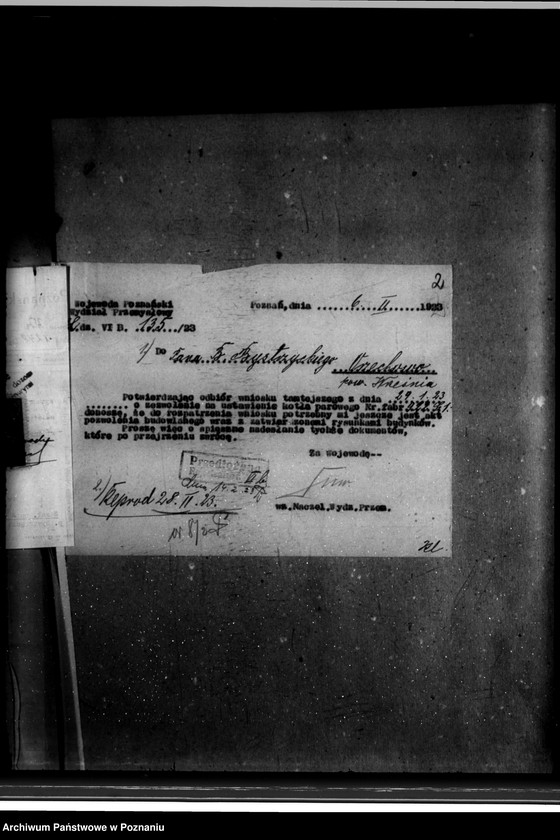 2
Wojewoda Poznański
Wydział Przemysłowy
L.dz. VI B. 135 /23
Poznań,dnia 6. II. 1923
1/ Do Pana Fr.
Orzechowo
pow. Września
Potwierdzając odbiór wniosku tamtejszego z dnia 29.1.23
o zezwolenie na ustawienie kotła parowego Nr.fabr.
donoszę, że do rozpatrzenia wniosku potrzebny mi jeszcze jest akt
pozwolenia budowlanego wraz z zatwierdzonemi rysunkami budynków.
Proszę więc o rychłe nadesłanie tychże dokumentów,
które po przejrzeniu zwrócę.
Za Wojewodę--
Przedłożono
dnia 14.2.23
2/ Reprod 28. II. 23.
wz.Naczel.Wydz.Przem.
Archiwum Państwowe w Poznaniu